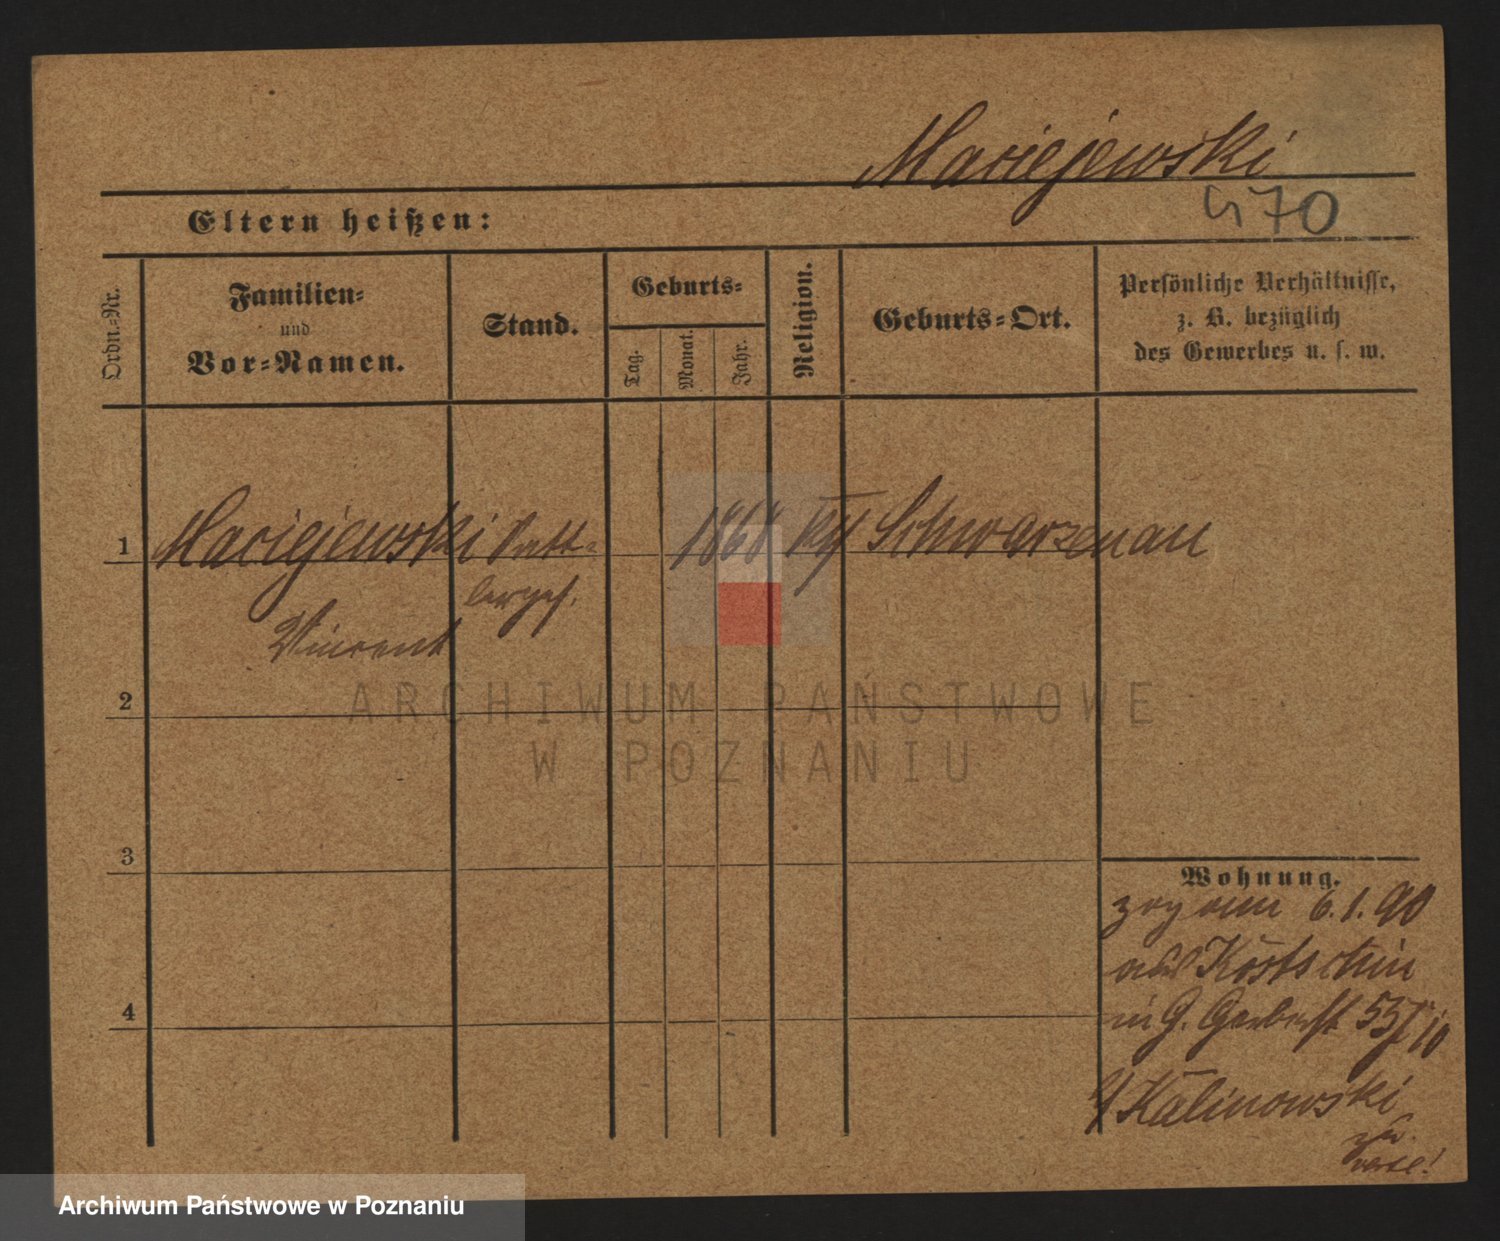 Maciejewski
470
Eltern heißen:
Ordn.-Nr.
Familien-
und
Vor-Namen.
Stand.
Geburts-
Tag.
Monat.
Jahr.
Religion.
Geburts-Ort.
Persönliche Verhältnisse,
z. B. bezüglich
des Gewerbes u. s. w.
1 Maciejewski Satt-
lerges. 1868 Schwarzenau
Vincent
2
3
4
Wohnung.
zog am 6.1.90
aus Kostschin
in G. Gerberst 53
Kalinowski
ARCHIWUM PAŃSTWOWE
W POZNANIU
Archiwum Państwowe w Poznaniu